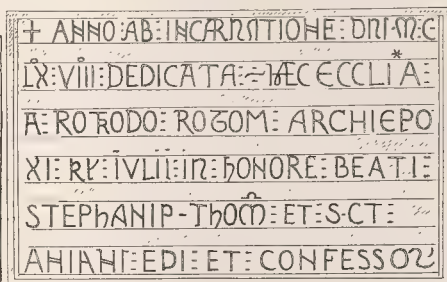 + ANNO:AB:INCARNATIONE:DNI:M:C
LX:VIII:DEDICATA:~HÆC ECCLIA:
A:ROTRODO:ROTOM:ARCHIEPO
XI:KL:IVLII:IN:hONORE:BEATI:
STEPhANIP-ThOM:ET:S·CT:
ANIANI:EDI:ET:CONFESSOR